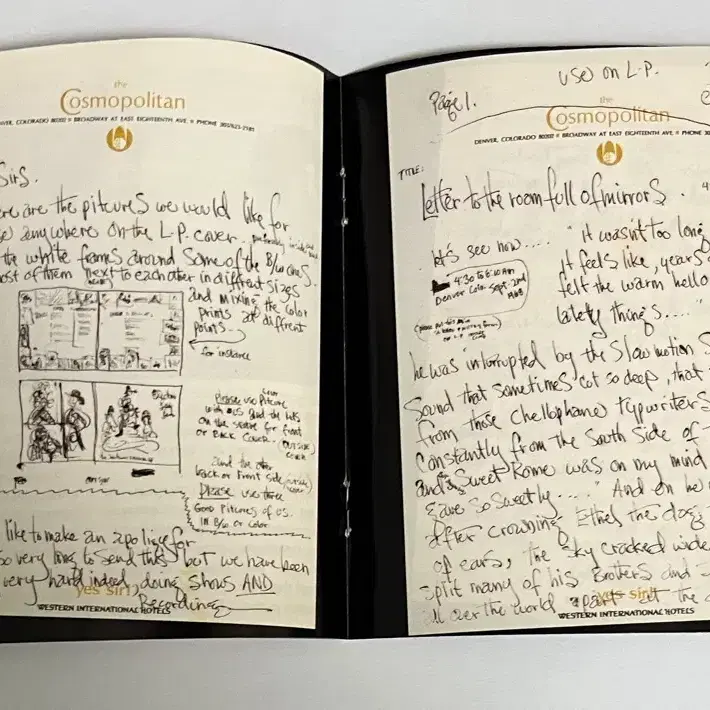 the
Cosmopolitan
NVER, COLORADO 80202 ■ BROADWAY AT EAST EIGHTEENTH AVE. ■ PHONE 303/623-2181
Sirs.
ere are the pitcures we would like for
anywhere on the L.P. cover.
the white frames around some of the B/W ones.
ost of them next to each other in diffrent sizes
and mixing the color
prints at diffrent
points.
for instance
Please use Picture
with us and the kids
on the statue for front
or Back Cover. (OUTSIDE) cover
and the other
back or Front side (outside) cover
Please use three
Good Pitcures of us.
IN B/W or color
like to make an apolige for
so very long to send this, but we have been
very hard indeed doing Shows AND
Recording
yes sir!
WESTERN INTERNATIONAL HOTELS
use on L.P.
Page 1.
the
Cosmopolitan
DENVER, COLORADO 80202 ■ BROADWAY AT EAST EIGHTEENTH AVE. ■ PHONE 30
TITLE:
Letter to the room full of mirrors.
let's see now.... "It wasn't too long
It feels like, years
felt the warm hello
lately things...."
4:30 to 6:10 AM
Denver Colo. Sept. 2nd
1968
he was interrupted by the Slow motion S
Sound that sometimes cut so deep, that
from those Chellophane typewriters
Constantly from the South Side of
and "Sweet Rome was on my mind
Eave so Sweetly...." And on he
After crowning Ethel the dog,
of ears, the sky cracked wide
split many of his Brothers and
all over the world apart let the
yes sir!
WESTERN INTERNATIONAL HOTELS